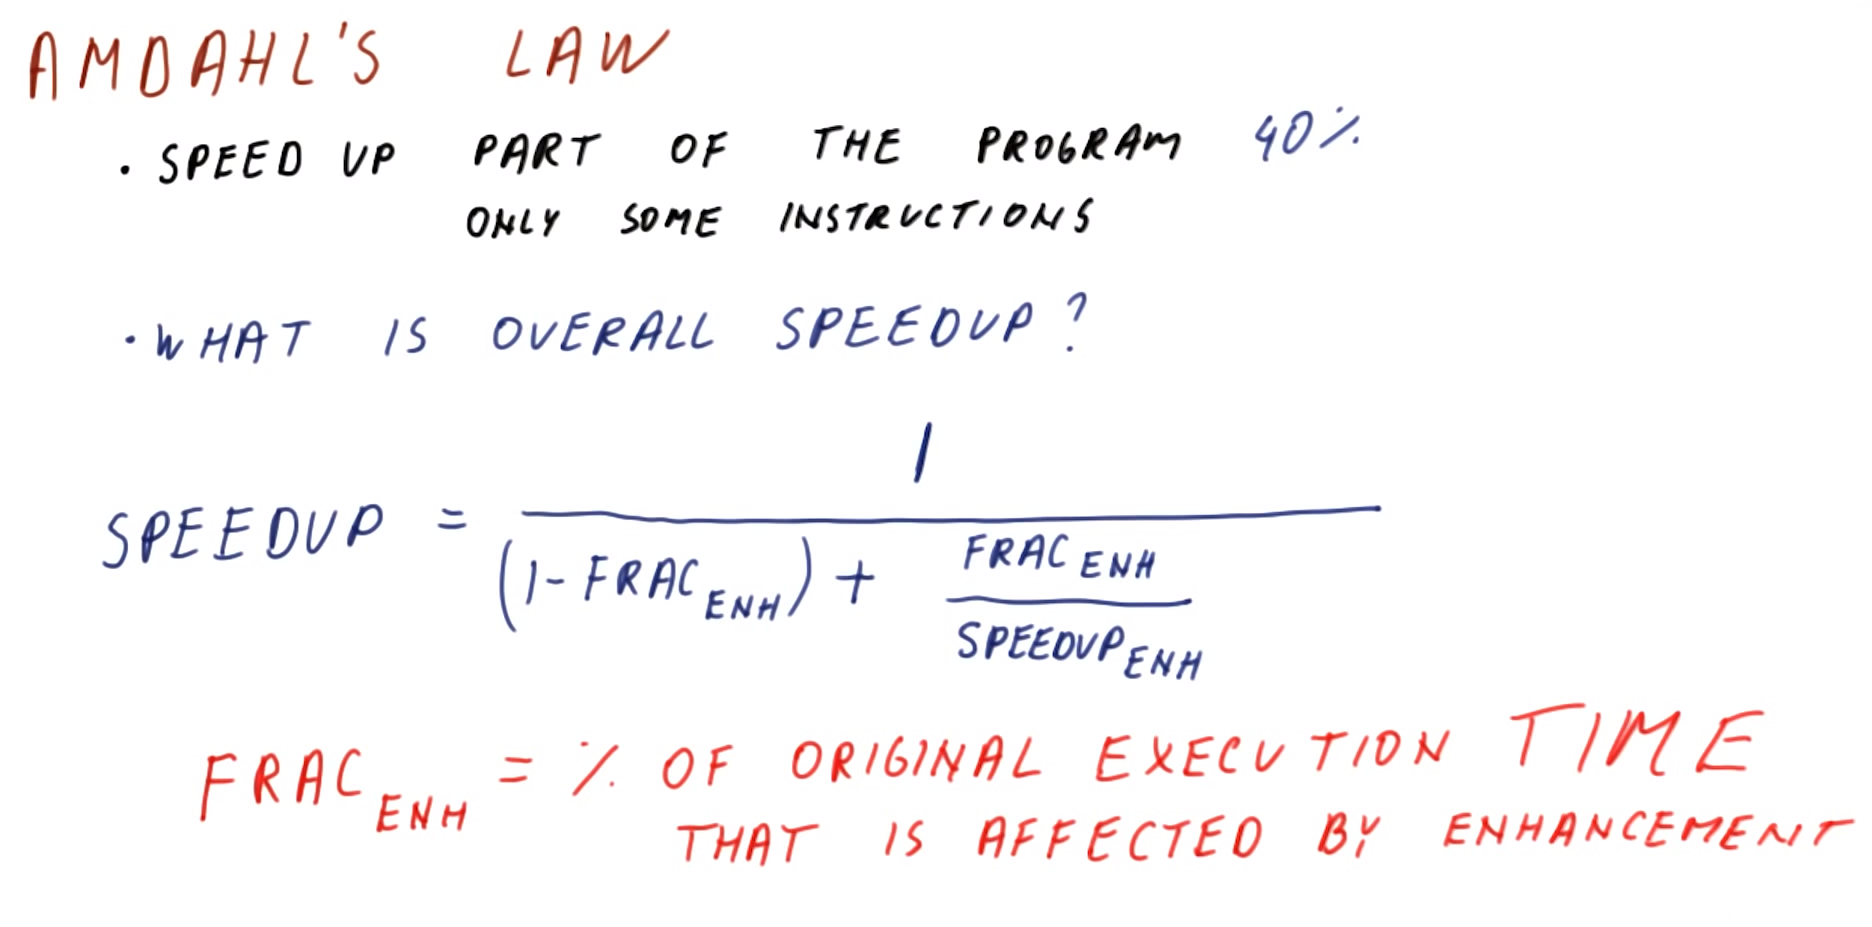 AMDAHL'S LAW
• SPEED UP PART OF THE PROGRAM 40%
ONLY SOME INSTRUCTIONS
• WHAT IS OVERALL SPEEDUP?
1
SPEEDUP =
(1 - FRAC ENH) + FRAC ENH
SPEEDUP ENH
FRAC ENH = % OF ORIGINAL EXECUTION TIME
THAT IS AFFECTED BY ENHANCEMENT